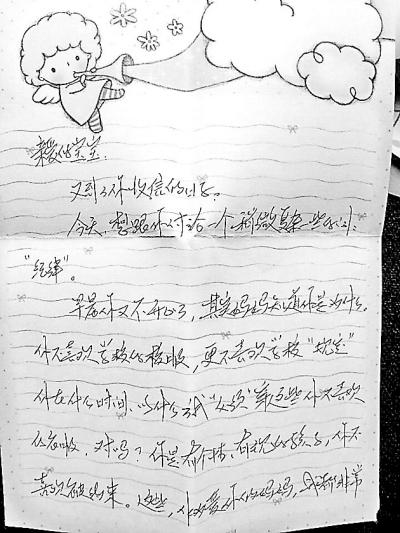 亲爱的宝宝:
又到了你收信的日子。
今天,想跟你讨论一个稍微复杂一些的词:
“纪律”。
早晨你又不开心了,其实妈妈知道你是为什么。
你不喜欢学校的校服,更不喜欢学校“规定”
你在什么时间、为什么 “必须”穿这些你不喜欢
的衣服,对吗?你是有个性、有 的孩子,你不
喜欢被约束。这些,你 爱你的妈妈, 非常